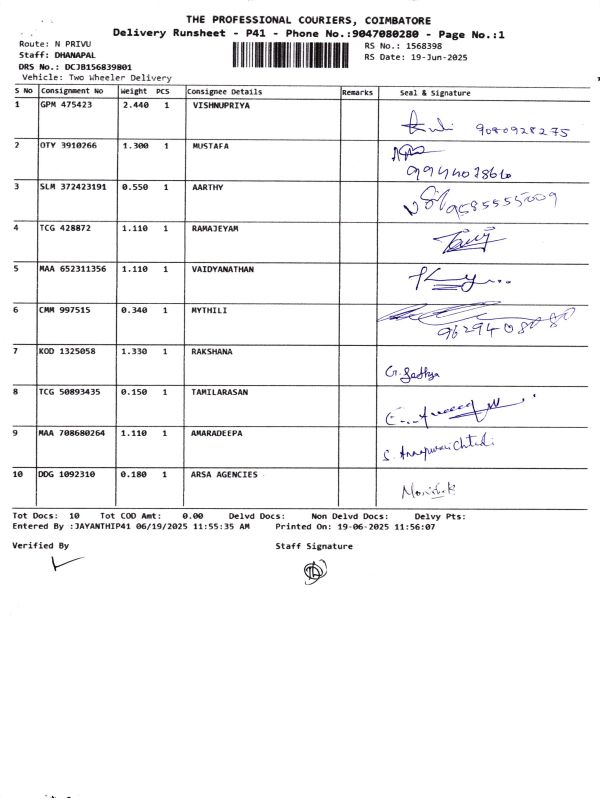 THE PROFESSIONAL COURIERS, COIMBATORE
Delivery Runsheet - P41 - Phone No.:9047080280 - Page No.:1
Route: N PRIVU RS No.: 1568398
Staff: DHANAPAL RS Date: 19-Jun-2025
DRS No.: DCJB156839801
Vehicle: Two Wheeler Delivery
S No Consignment No Weight PCS Consignee Details Remarks Seal & Signature
1 GPM 475423 2.440 1 VISHNUPRIYA
9080928275
2 OTY 3910266 1.300 1 MUSTAFA
3 SLM 372423191 0.550 1 AARTHY
9585555009
4 TCG 428872 1.110 1 RAMAJEYAM
5 MAA 652311356 1.110 1 VAIDYANATHAN
6 CMM 997515 0.340 1 MYTHILI
9629408080
7 KOD 1325058 1.330 1 RAKSHANA
8 TCG 50893435 0.150 1 TAMILARASAN
9 MAA 708680264 1.110 1 AMARADEEPA
10 DDG 1092310 0.180 1 ARSA AGENCIES
Tot Docs: 10 Tot COD Amt: 0.00 Delvd Docs: Non Delvd Docs: Delvy Pts:
Entered By :JAYANTHIP41 06/19/2025 11:55:35 AM Printed On: 19-06-2025 11:56:07
Verified By Staff Signature